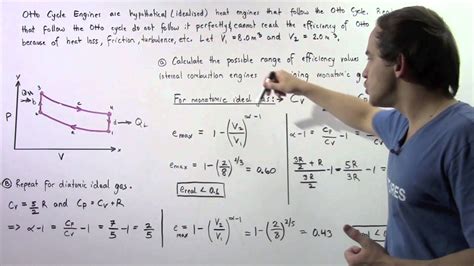 Otto Cycle Engines are hypothetical (idealized) heat engines that follow the Otto Cycle. 
that follow the Otto cycle do not follow it perfectly & cannot reach the efficiency of Otto
because of heat loss, friction, turbulence, etc. Let V₁ = 8.0 m³ and V₂ = 2.0 m³.
Calculate the possible range of efficiency values
internal combustion engines monatomic
For monatomic ideal gas: → Cv
P
V
QH
QL
3
b
c
4
1
a
e max = 1 - (V₂/V₁)^(α-1)
e max = 1 - (2/8)^(2/3) = 0.60
e real < 0.6
α-1 = Cp/Cv - 1 =
(3R/2 + R)/(3R/2) - 1 = 5R/3R
Ⓑ Repeat for diatomic ideal gas.
Cv = 5/2 R and Cp = Cv + R
⇒ α-1 = Cp/Cv - 1 = 7/5 - 1 = 2/5
e max = 1 - (V₂/V₁)^(α-1) = 1 - (2/8)^(2/5) = 0.43
e real <